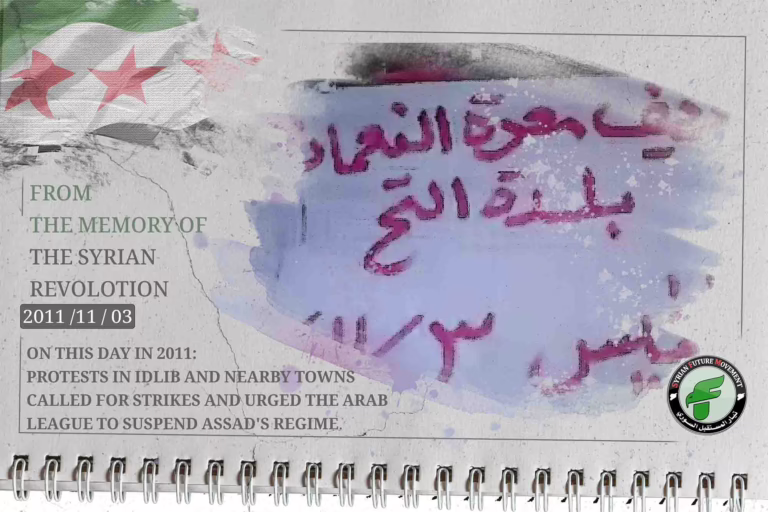 FROM
THE MEMORY OF
THE SYRIAN
REVOLOTION
2011 /11 / 03
ON THIS DAY IN 2011:
PROTESTS IN IDLIB AND NEARBY TOWNS
CALLED FOR STRIKES AND URGED THE ARAB
LEAGUE TO SUSPEND ASSAD'S REGIME.
معرة النعمان
بلدة التح
٣/١١/
SYRIAN FUTURE MOVEMENT
تيار المستقبل السوري